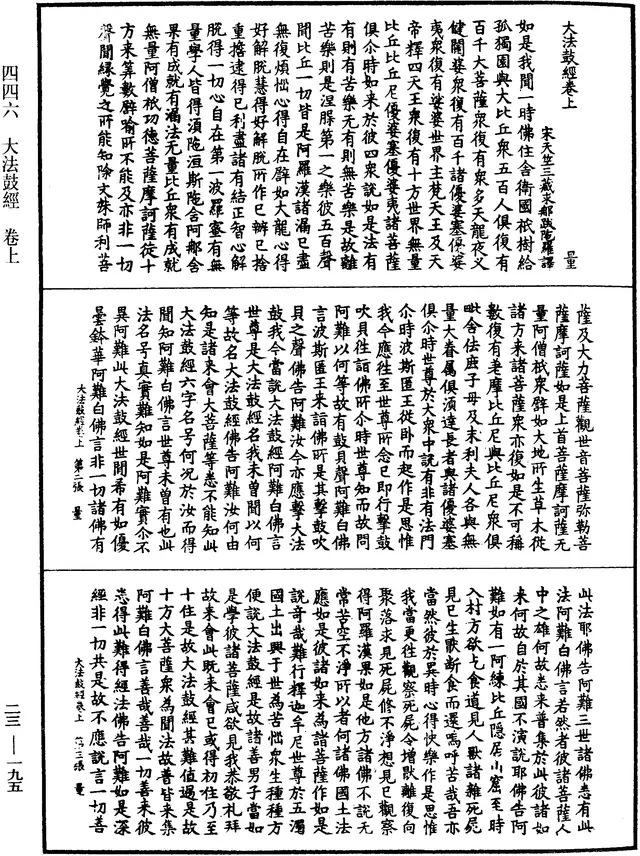 大法鼓經卷上
宋天竺三藏求那跋陀羅譯 量
如是我聞一時佛住舍衛國祇樹給
孤獨園與大比丘眾五百人俱復有
百千大菩薩眾復有眾多天龍夜叉
健闥婆眾復有百千諸優婆塞優婆
夷眾復有娑婆世界主梵天王及天
帝釋四天王眾復有十方世界無量
比丘比丘尼優婆塞優婆夷諸菩薩
俱尒時如來於彼四眾說如是法有
有則有苦樂无有則無苦樂是故離
苦樂則是涅槃第一之樂彼五百聲
聞比丘一切皆是阿羅漢諸漏已盡
無復煩惱心得自在譬如大龍心得
好解脫慧得好解脫所作已辦已捨
重擔逮得己利盡諸有結正智心解
脫得一切心自在第一波羅蜜有無
量學人皆得須陁洹斯陁含阿那含
果有成就有漏法无量比丘眾有成就
無量阿僧祇功德菩薩摩訶薩從十
方來筭數譬喻所不能及亦非一切
聲聞緣覺之所能知除文殊師利菩
薩及大力菩薩觀世音菩薩彌勒菩
薩摩訶薩如是上首菩薩摩訶薩无
量阿僧祇眾譬如大地所生草木從
諸方來諸菩薩眾亦復如是不可稱
數復有老摩比丘尼與比丘尼眾俱
毗舍佉鹿子母及末利夫人各與無
量大眷屬俱須達長者與諸優婆塞
俱尒時世尊於大眾中說有非有法門
尒時波斯匿王從卧而起作是思惟
我今應往至世尊所念已即行擊鼓
吹貝往詣佛所尒時世尊知而故問
阿難以何等故有鼓貝聲阿難白佛
言波斯匿王來詣佛所是其擊鼓吹
貝之聲佛告阿難汝今亦應擊大法
鼓我今當說大法鼓經阿難白佛言
世尊是大法鼓經名我未曾聞以何
等故名大法鼓經佛告阿難汝何由
知是諸來會大菩薩等悉不能知此
大法鼓經六字名号何況於汝而得
聞知阿難白佛言世尊未曾有也此
法名号真實難知如是阿難實尒不
異阿難此大法鼓經世間希有如優
曇鉢華阿難白佛言非一切諸佛有
大法鼓經卷上 第二張 量
此法耶佛告阿難三世諸佛悉有此
法阿難白佛言若然者彼諸菩薩人
中之雄何故悉來普集於此彼諸如
來何故自於其國不演說耶佛告阿
難如有一阿練比丘隱居山窟至時
入村方欲乞食道見人獸諸雜死屍
見已生猒斷食而還嗚呼苦哉吾亦
當然彼於異時心得快樂作是思惟
我當更往觀察死屍令增猒離復向
聚落求見死屍修不淨想見已觀察
得阿羅漢果如是他方諸佛不說无
常苦空不淨所以者何諸佛國土法
應如是彼諸如來為諸菩薩作如是
說奇哉難行釋迦牟尼世尊於五濁
國土出興于世為苦惱眾生種種方
便說大法鼓經是故諸善男子當如
是學彼諸菩薩咸欲見我恭敬礼拜
故來會此既來會已或得初住乃至
十住是故大法鼓經甚難值遇是故
十方大菩薩眾為聞法故普皆來集
阿難白佛言善哉善哉一切善來彼
悉得此難得經法佛告阿難如是深
經非一切共是故不應說言一切善
大法鼓經卷上 第三張 量
四四六 大法鼓經 卷上
二三——一九五